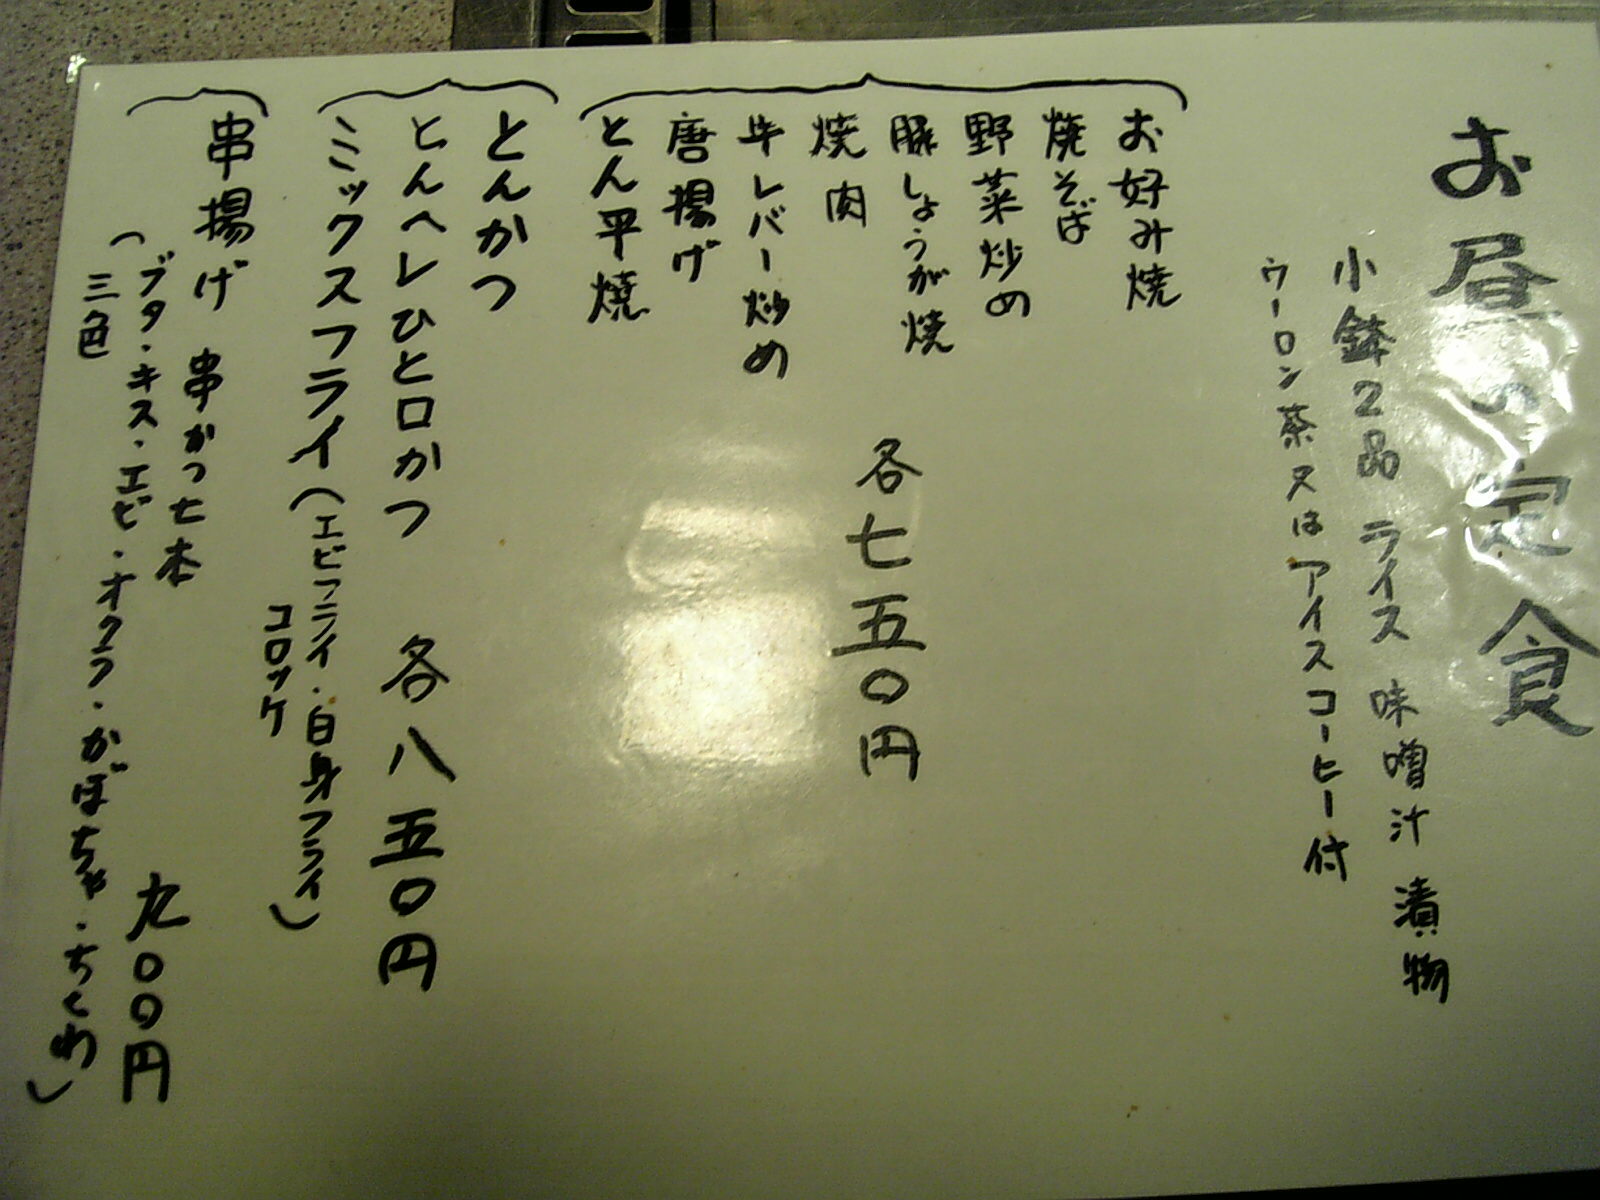 お昼の定食
小鉢2品 ライス 味噌汁 漬物
ウーロン茶又はアイスコーヒー付
お好み焼
焼そば
野菜炒め
豚しょうが焼
焼肉
牛レバー炒め
唐揚げ
とん平焼
各七五〇円
とんかつ
とんヘレひと口かつ
ミックスフライ(エビフライ・白身フライ
コロッケ)
各八五〇円
串揚げ 串かつ七本
(ブタ・キス・エビ・オクラ・かぼちゃ・ちくわ
三色)
九〇〇円